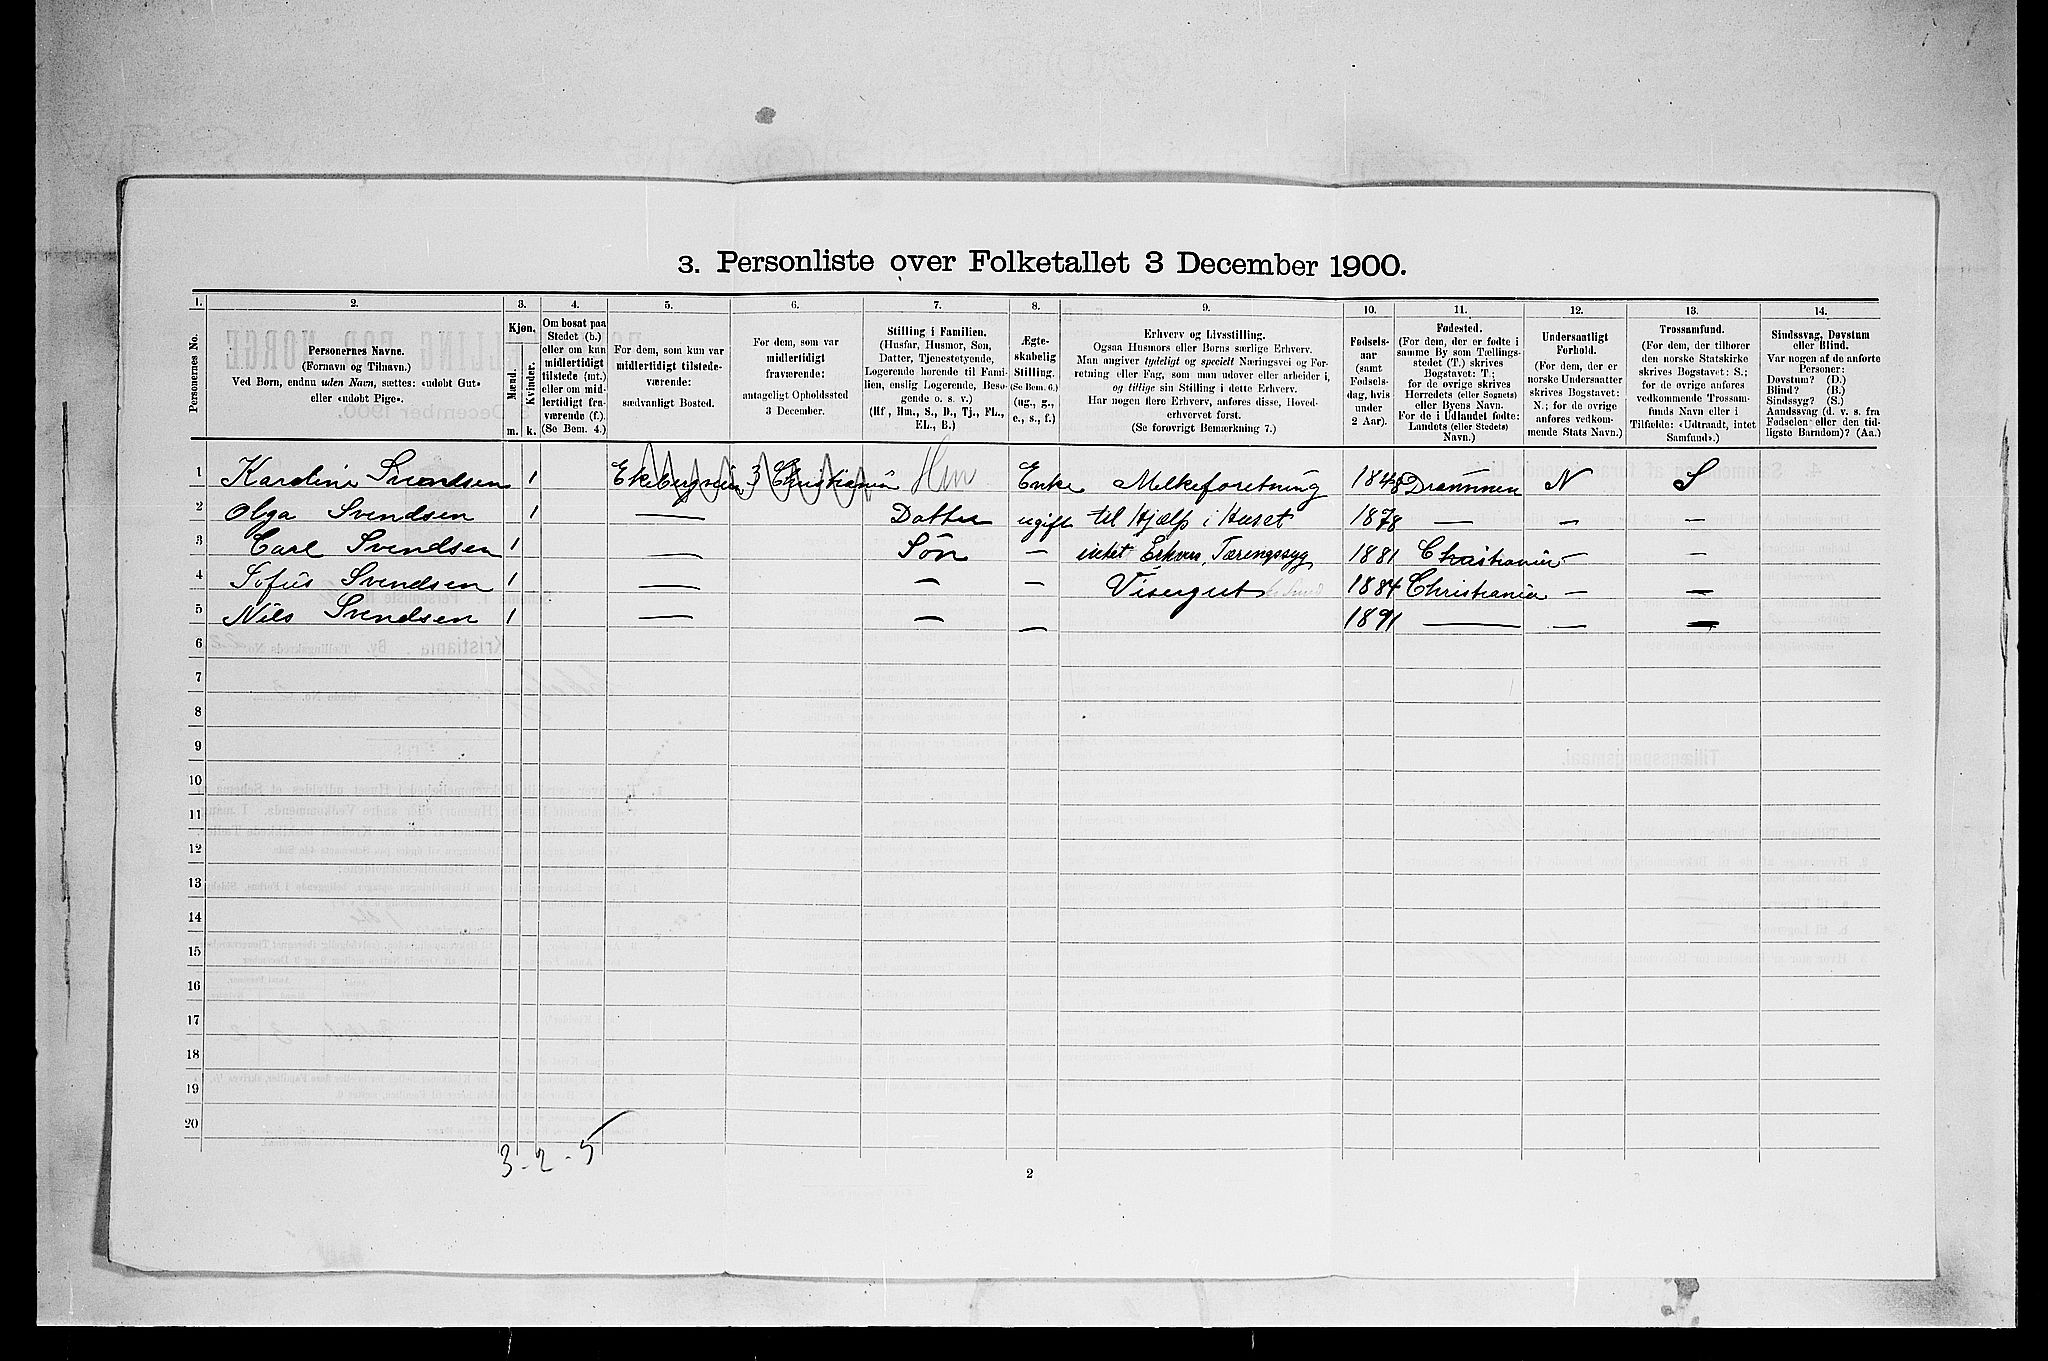 3. Personliste over Folketallet 3 December 1900.
1. 2. 3. 4. 5. 6. 7. 8. 9. 10. 11. 12. 13. 14.
Personernes No.
Personernes Navne.
(Fornavn og Tilnavn.)
Ved Børn, endnu uden Navn, sættes: «udøbt Gut»
eller «udøbt Pige».
Kjøn.
Mænd.
Kvinder.
m. k.
Om bosat paa
Stedet (b.)
eller om kun
midlertidigt
tilstede (mt.)
eller om mid-
lertidigt fra-
værende (f.).
(Se Bem. 4.)
For dem, som kun var
midlertidigt tilstede-
værende:
sædvanligt Bosted.
For dem, som var
midlertidigt
fraværende:
antageligt Opholdssted
3 December.
Stilling i Familien.
(Husfar, Husmor, Søn,
Datter, Tjenestetyende,
Logerende hørende til Fami-
lien, enslig Logerende, Besø-
gende o. s. v.)
(Hf, Hm., S., D., Tj., FL.,
EL., B.)
Ægte-
skabelig
Stilling.
(Se Bem. 6.)
(ug., g.,
e., s., f.)
Erhverv og Livsstilling.
Ogsaa Husmors eller Børns særlige Erhverv.
Man angiver tydeligt og specielt Næringsvei og For-
retning eller Fag, som man udøver eller arbeider i,
og tillige sin Stilling i dette Erhverv.
Har nogen flere Erhverv, anføres disse, Hoved-
erhvervet først.
(Se forøvrigt Bemærkning 7.)
Fødsels-
aar
(samt
Fødsels-
dag, hvis
under
2 Aar).
Fødested.
(For dem, der er fødte i
samme By som Tællings-
stedet (T.) skrives
Bogstavet: T.;
for de øvrige skrives
Herredets (eller Sognets)
eller Byens Navn.
For de i Udlandet fødte:
Landets (eller Stedets)
Navn.)
Undersaatligt
Forhold.
(For dem, der er
norske Undersaatter
skrives Bogstavet:
N.; for de øvrige
anføres vedkom-
mende Stats Navn.)
Trossamfund.
(For dem, der tilhører
den norske Statskirke
skrives Bogstavet: S.;
for de øvrige anføres
vedkommende Trossam-
funds Navn eller i
Tilfælde: «Udtraadt, intet
Samfund».)
Sindssvag, Døvstum
eller Blind.
Var nogen af de anførte
Personer:
Døvstum? (D.)
Blind? (B.)
Sindssyg? (S.)
Aandssvag (d. v. s. fra
Fødselen eller den tid-
ligste Barndom)? (Aa.)
1 Karoline Svendsen 1 Ekebergveien 3 Christiania Hm Enke Melkeforetning 1848 Drammen N S
2 Olga Svendsen 1 — Datter ugift til Hjælp i Huset 1878 — — —
3 Carl Svendsen 1 — Søn — intet Erhver, Tæringssyg 1881 Christiania — —
4 Sofus Svendsen 1 — — — Visergut 1884 Christiania — —
5 Nils Svendsen 1 — — — 1891 — — —
6
7
8
9
10
11
12
13
14
15
16
17
18
19
20
3 - 2 - 5
2